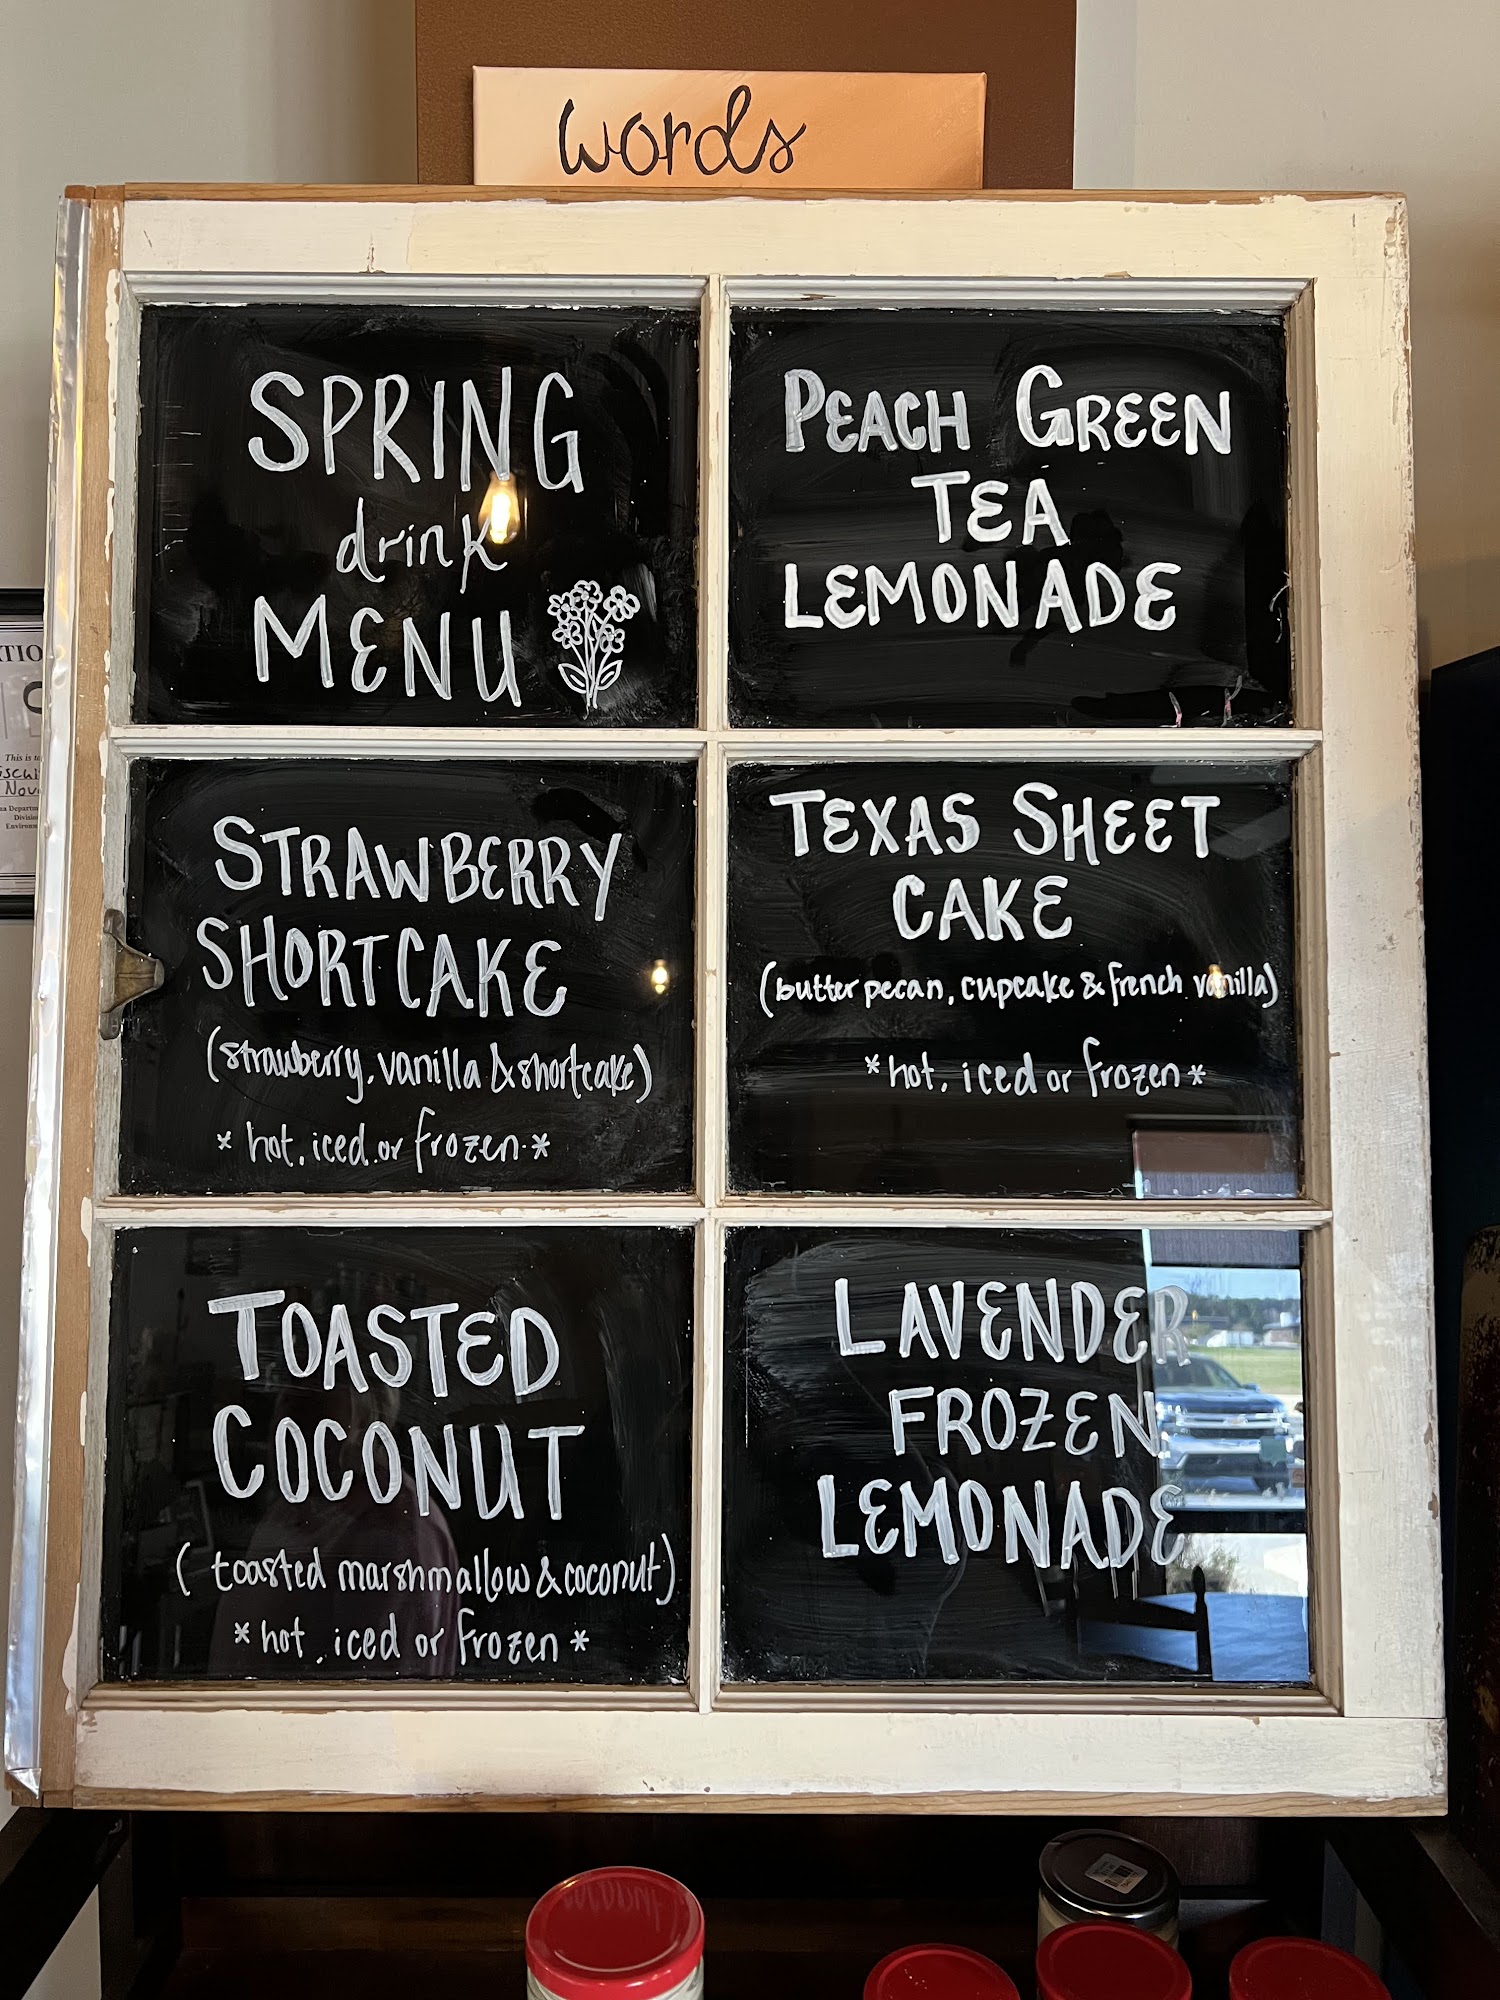 words
SPRING
drink
MENU
PEACH GREEN
TEA
LEMONADE
STRAWBERRY
SHORTCAKE
(strawberry, vanilla & shortcake)
* hot, iced or frozen *
TEXAS SHEET
CAKE
(butter pecan, cupcake & french vanilla)
*hot, iced or frozen*
TOASTED
COCONUT
(toasted marshmallow & coconut)
*hot, iced or frozen*
LAVENDER
FROZEN
LEMONADE
This is to
Nov
Division